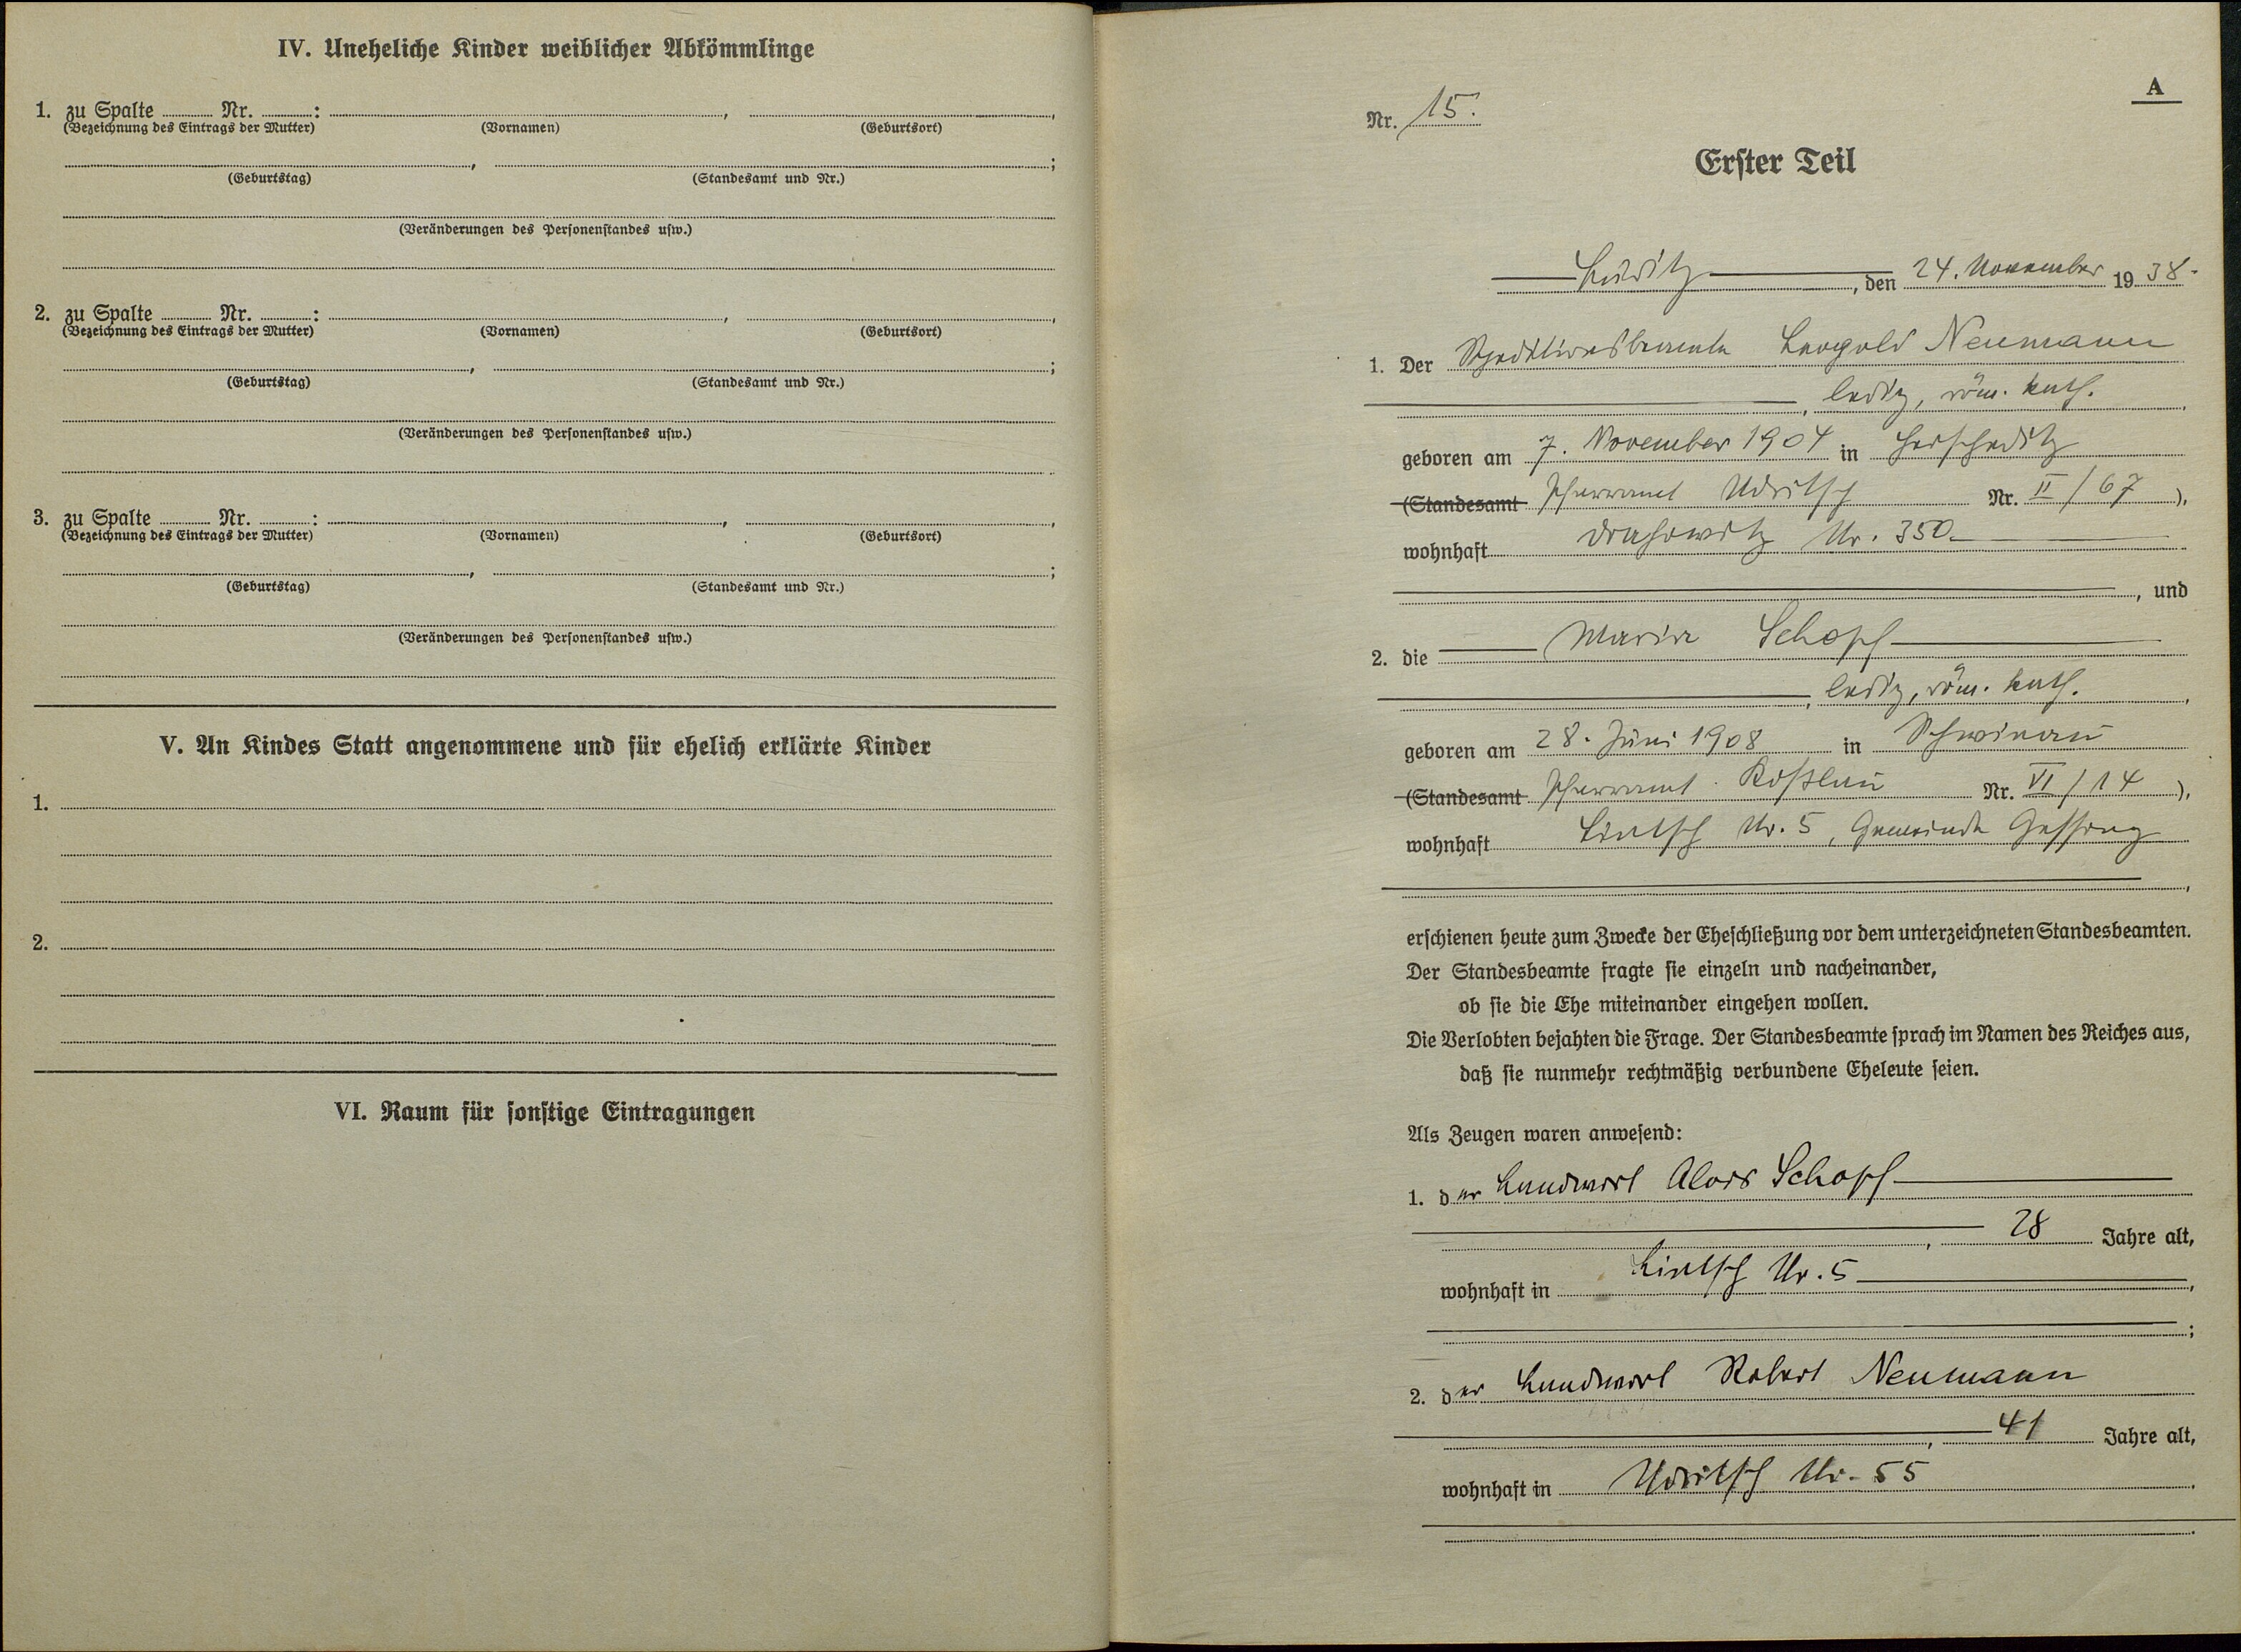 IV. Uneheliche Kinder weiblicher Abkömmlinge
1. zu Spalte ........ Nr. ........: ........, ........,
(Bezeichnung des Eintrags der Mutter) (Vornamen) (Geburtsort)
........, ........;
(Geburtstag) (Standesamt und Nr.)
(Veränderungen des Personenstandes usw.)
2. zu Spalte ........ Nr. ........: ........, ........,
(Bezeichnung des Eintrags der Mutter) (Vornamen) (Geburtsort)
........, ........;
(Geburtstag) (Standesamt und Nr.)
(Veränderungen des Personenstandes usw.)
3. zu Spalte ........ Nr. ........: ........, ........,
(Bezeichnung des Eintrags der Mutter) (Vornamen) (Geburtsort)
........, ........;
(Geburtstag) (Standesamt und Nr.)
(Veränderungen des Personenstandes usw.)
V. An Kindes Statt angenommene und für ehelich erklärte Kinder
1.
2.
VI. Raum für sonstige Eintragungen
A
Nr. 15.
Erster Teil
Luditz, den 24. November 1938.
1. Der Speditionsbeamte Leopold Neumann
, ledig, röm. kath.
geboren am 7. November 1904 in Herscheditz
(Standesamt Pfarramt Udritsch Nr. II/67),
wohnhaft Drahowitz Nr. 350
, und
2. die Maria Schopf
, ledig, röm. kath.,
geboren am 28. Juni 1908 in Schwinau
(Standesamt Pfarramt Koßlau Nr. VI/14),
wohnhaft Lintsch Nr. 5, Gemeinde Gessing
,
erschienen heute zum Zwecke der Eheschließung vor dem unterzeichneten Standesbeamten.
Der Standesbeamte fragte sie einzeln und nacheinander,
ob sie die Ehe miteinander eingehen wollen.
Die Verlobten bejahten die Frage. Der Standesbeamte sprach im Namen des Reiches aus,
daß sie nunmehr rechtmäßig verbundene Eheleute seien.
Als Zeugen waren anwesend:
1. der Landwirt Alois Schopf
, 28 Jahre alt,
wohnhaft in Lintsch Nr. 5,
;
2. der Landwirt Robert Neumann
, 41 Jahre alt,
wohnhaft in Udritsch Nr. 55
.